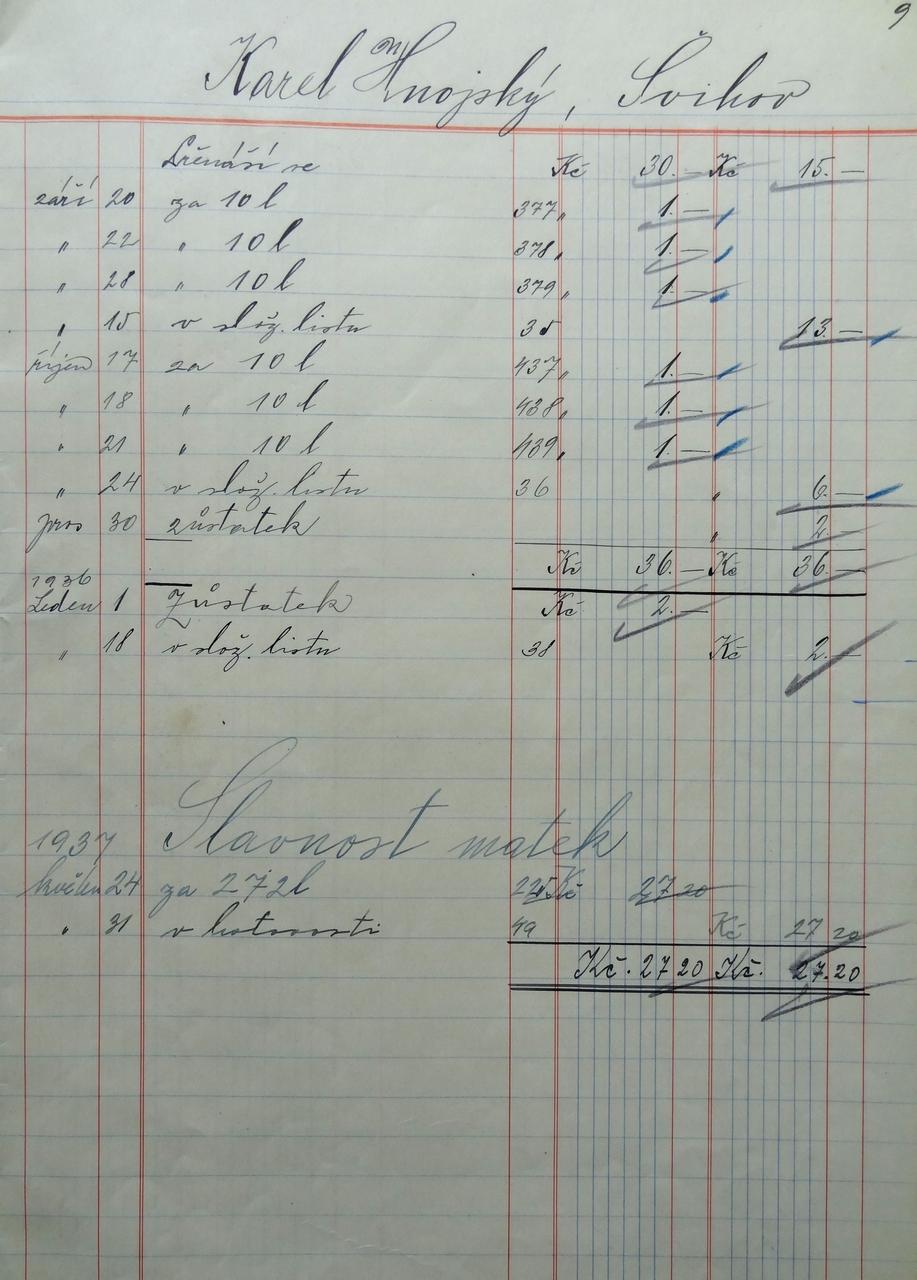 9
Karel Hnojský, Švihov
Přenáší se Kč 30.— Kč 15.—
září 20 za 10 l 377 „ 1.—
„ 22 „ 10 l 378 „ 1.—
„ 28 „ 10 l 379 „ 1.—
„ 15 v slož. listu 35 13.—
říjen 17 za 10 l 437 „ 1.—
„ 18 „ 10 l 438 „ 1.—
„ 21 „ 10 l 439 „ 1.—
„ 24 v slož. listu 36 „ 6.—
pros 30 zůstatek „ 2.—
Kč 36.— Kč 36.—
1936
Leden 1 Zůstatek Kč 2.—
„ 18 v slož. listu 38 Kč 2.—
1937 Slavnost matek
květen 24 za 272 l 225 Kč 27 20
„ 31 v hotovosti 49 Kč 27 20
Kč. 27 20 Kč. 27.20